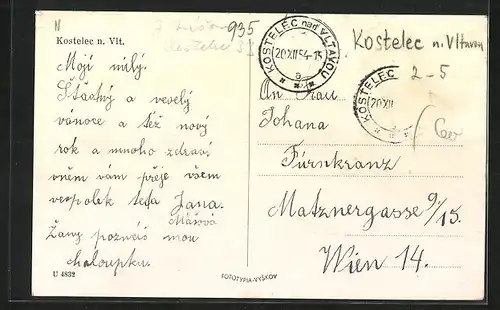 N
935
Kostelec n. Vlt.
KOSTELEC nad VLTAVOU
20.XII.54-15
a
Kostelec n. Vltavou
2-5
KOSTELEC
20.XII
Moji milý.
Štástný a veselý
vanoce a též nový
rok a mnoho zdraví
vněm vám přeje všem
vespolek teta Jana.
Mášová
Žany poznáš mou
chaloupku.
An Frau
Johana
Fürnkranz
Matznergasse 9/15.
Wien 14.
U 4832
FOTOTYPIA-VYŠKOV